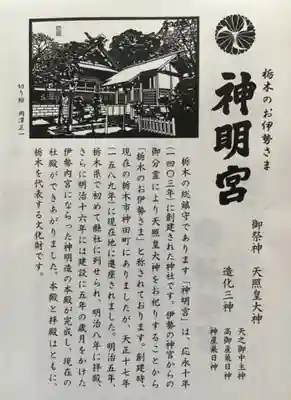 栃木のお伊勢さま
神明宮
御祭神　天照皇大神
造化三神
天之御中主神
高御産巣日神
神産巣日神
切り絵　岡澤正一
栃木の総鎮守であります「神明宮」は、応永十年
（一四〇三年）に創建された神社です。伊勢の神宮からの
御分霊により天照皇大神をお祀りすることから
「栃木のお伊勢さま」と称されております。創建時、
現在の栃木市神田町にありましたが、天正十七年
（一五八九年）に現在地に遷座されました。明治五年、
栃木県で初めて県社に列せられ、明治八年に拝殿、
さらに明治十六年には建設に五年の歳月をかけた
伊勢内宮にならった神明造の本殿が完成し、現在の
社殿ができあがりました。本殿と拝殿はともに、
栃木を代表する文化財です。